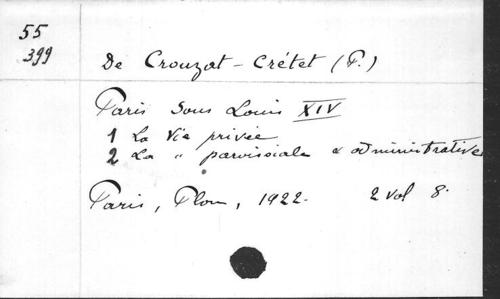 55
399
De Crouzat-Crétet (P.)
Paris sous Louis XIV
1 La Vie privée
2 La " paroissiale & administrative
Paris, Plon, 1922. 2 vol 8.